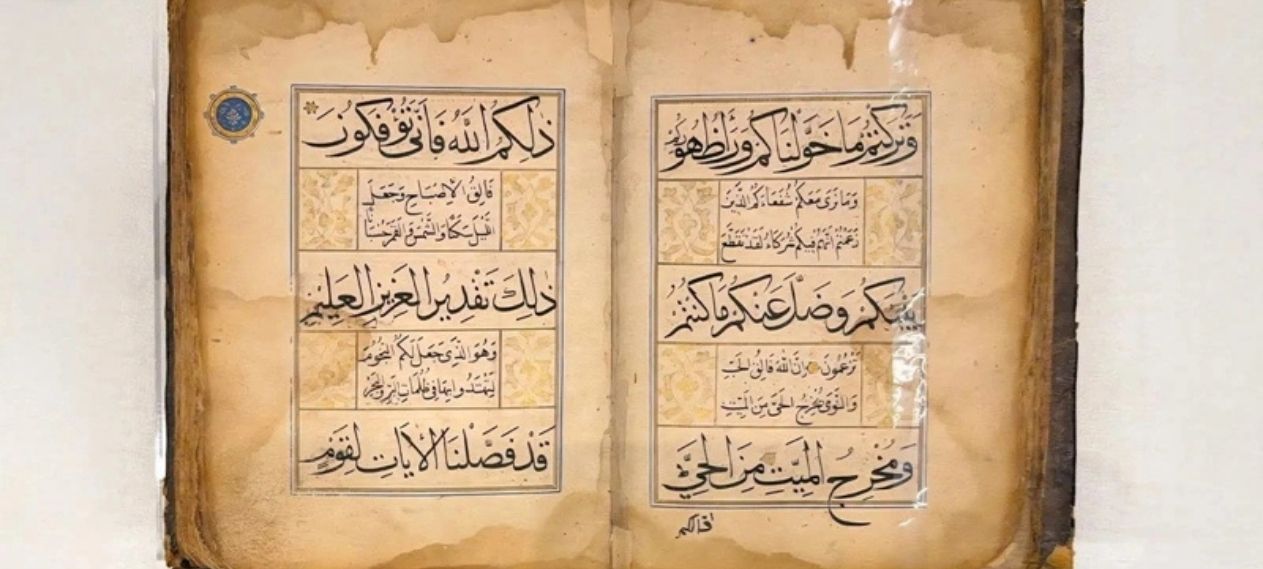 وَتَرَكْتُمْ مَا خَوَّلْنَاكُمْ وَرَاءَ ظُهُورِكُمْ
وَمَا نَرَى مَعَكُمْ شُفَعَاءَكُمُ الَّذِينَ
زَعَمْتُمْ اَنَّهُمْ فِيكُمْ شُرَكَاءُ لَقَدْ تَقَطَّعَ
بَيْنَكُمْ وَضَلَّ عَنْكُمْ مَا كُنْتُمْ
تَزْعُمُونَ اِنَّ اللَّهَ فَالِقُ الْحَبِّ
وَالنَّوَى يُخْرِجُ الْحَيَّ مِنَ الْمَيِّتِ
وَمُخْرِجُ الْمَيِّتِ مِنَ الْحَيِّ
ذٰلِكُمُ اللّٰهُ فَاَنّٰى تُؤْفَكُونَ
فَالِقُ الْاِصْبَاحِ وَجَعَلَ
اللَّيْلَ سَكَنًا وَالشَّمْسَ وَالْقَمَرَ حُسْبَانًا
ذٰلِكَ تَقْدِيرُ الْعَزِيزِ الْعَلِيمِ
وَهُوَ الَّذِى جَعَلَ لَكُمُ النُّجُومَ
لِتَهْتَدُوا بِهَا فِى ظُلُمَاتِ الْبَرِّ وَالْبَحْرِ
قَدْ فَصَّلْنَا الْاٰيَاتِ لِقَوْمٍ